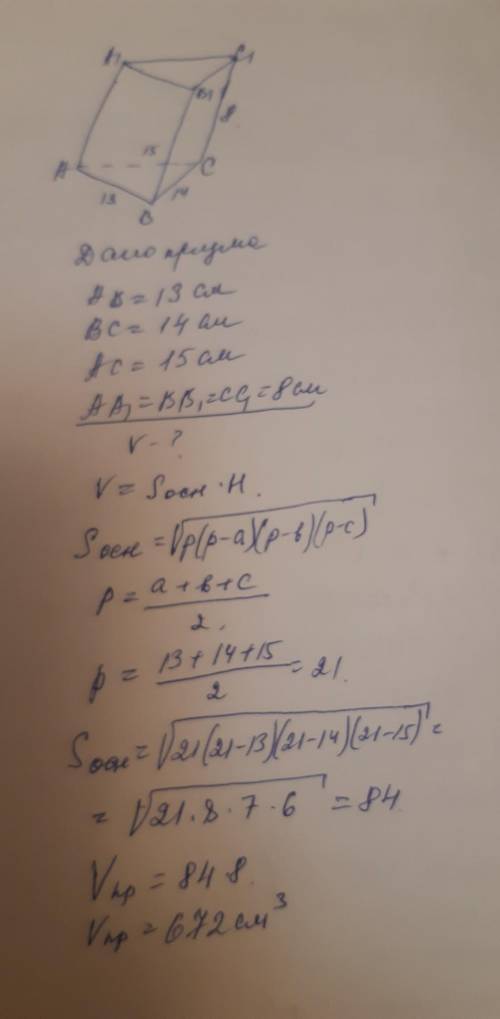 A1 C1
B1
8
15
A C
13 14
B
Дано призма
AB = 13 см
BC = 14 см
AC = 15 см
AA₁ = BB₁ = CC₁ = 8 см
V - ?
V = Sосн · H.
Sосн = √p(p-a)(p-в)(p-c)
p = a + в + c / 2.
p = 13 + 14 + 15 / 2 = 21.
Sосн = √21(21-13)(21-14)(21-15) =
= √21 · 8 · 7 · 6 = 84
Vпр = 84 8.
Vпр = 672 см³